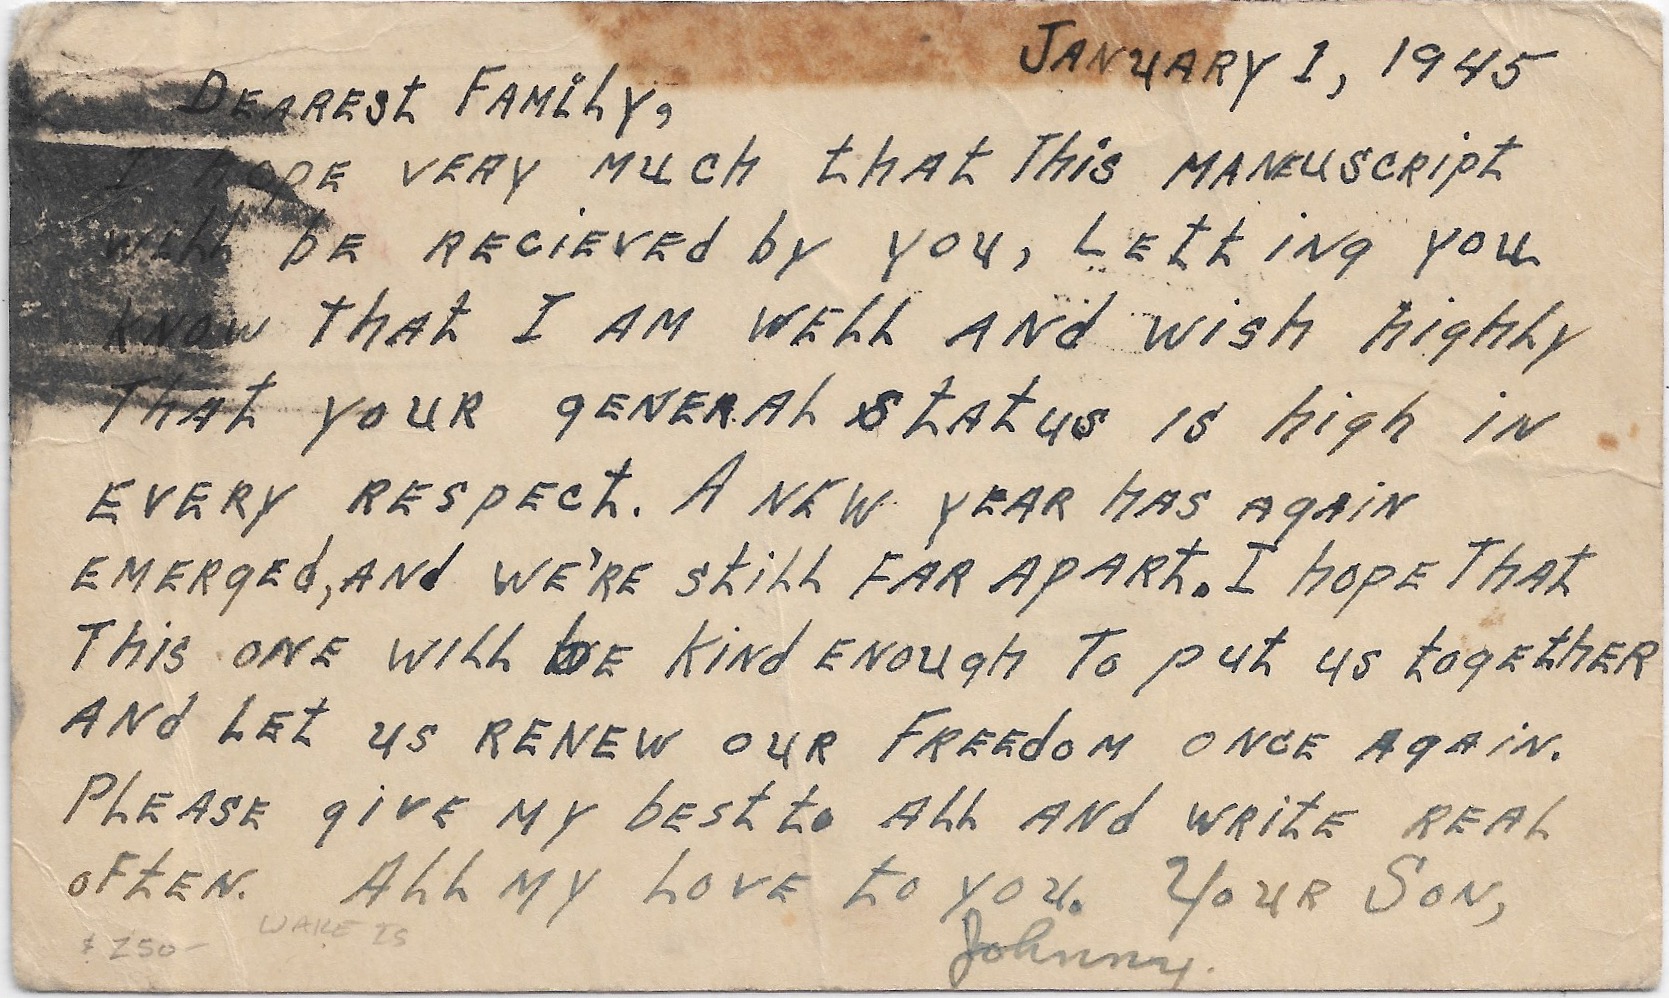 January 1, 1945
Dearest Family,
I hope very much that this maneuscript
will be recieved by you, Letting you
know that I am well and wish highly
that your general status is high in
every respect. A new year has again
emerged, and we're still far apart. I hope that
this one will be kind enough to put us together
and let us renew our Freedom once again.
Please give my best to all and write real
often. All my love to you. Your Son,
Johnny.
WAKE IS
$250-